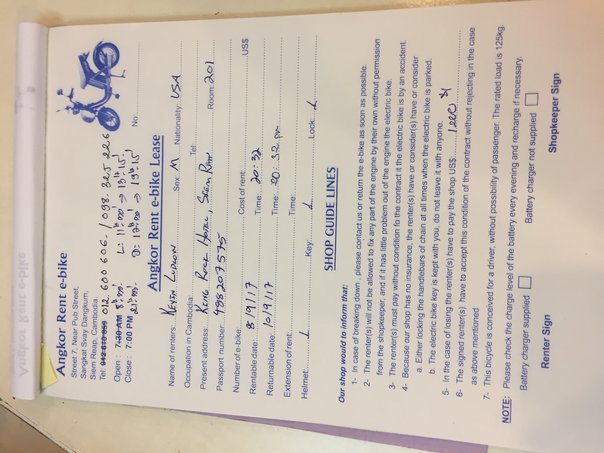 Angkor Rent e-bike
Street 7, Near Pub Street,
Sangkat Svay Dangkum,
Siem Reap, Cambodia.
Tel 012 600 606 / 098 325 226
Open : 7:30 AM 8:00 L: 11h00 → 13h15!
Close : 7:00 PM 21:00! D: 17h00 → 19h15!
No
Angkor Rent e-bike Lease
Name of renters: Kevin Sex: M Nationality: USA
Occupation in Cambodia: Tel:
Present address: King Rock Hotel, Siem Reap Room: 201
Passport number: 498207575
Number of e-bike: Cost of rent: US$
Rentable date: 8/9/17 Time: 20:32
Returnable date: 10/9/17 Time: 20:32 pm
Extension of rent: Time:
Helmet: 1 Key: 1 Lock: 1
SHOP GUIDE LINES
Our shop would to inform that:
1- In case of breaking down , please contact us or return the e-bike as soon as possible.
2- The renter(s) will not be allowed to fix any part of the engine by their own without permission
from the shopkeeper, and if it has little problem out of the engine the electric bike.
3- The renter(s) must pay without condition fo the contract it the electric bike is by an accident.
4- Because our shop has no insurance, the renter(s) have or consider(s) have or consider
a. Either locking the handlebars of chain at all times when the electric bike is parked.
b. The electric bike key is kept with you, do not leave it with anyone.
5- In the case of losing the renter(s) have to pay the shop US$: 1200 $
6- The signed renter(s) have to accept this condition of the contract without rejecting in the case
as above mentioned
7- This bicycle is conceived for a driver, without possibility of passenger. The rated load is 125kg.
NOTE: Please check the charge level of the battery every evening and recharge if necessary.
Battery charger supplied Battery charger not supplied
Renter Sign Shopkeeper Sign